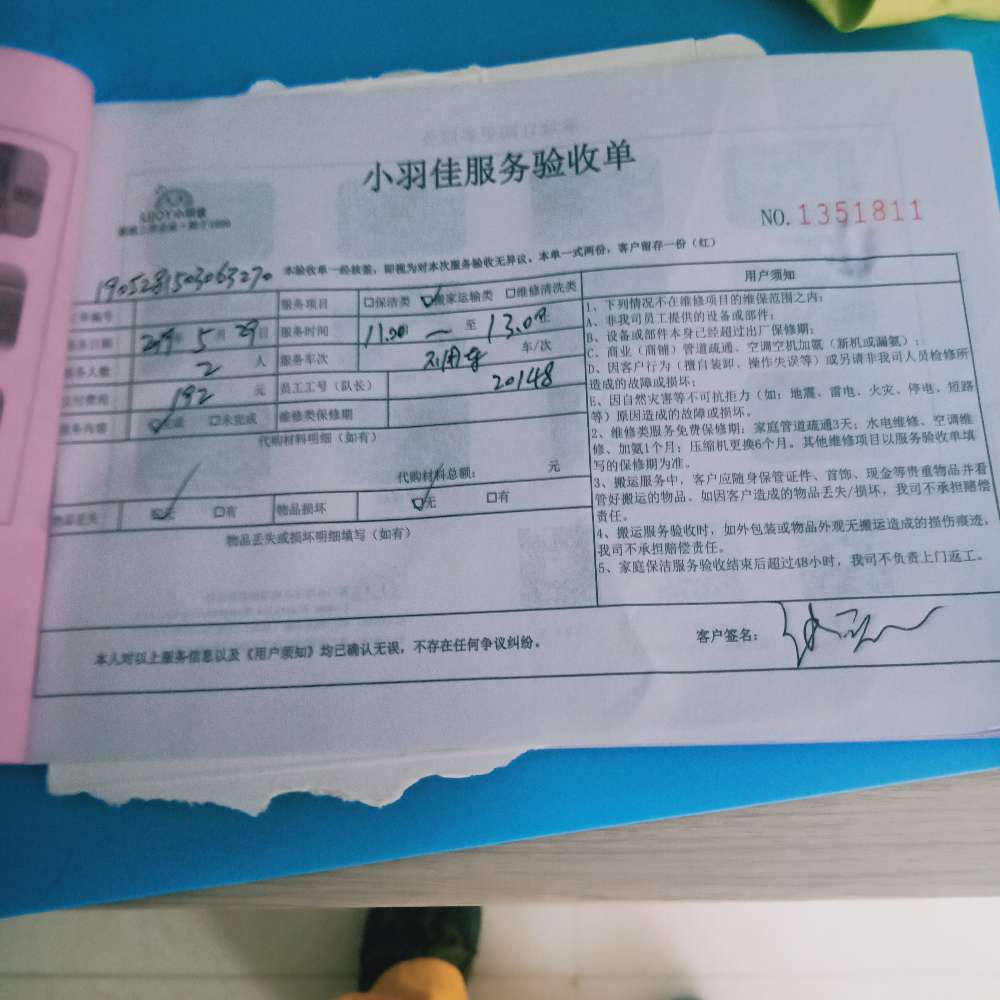 小羽佳服务验收单
NO.1351811
本验收单一经核签，即视为对本次服务验收无异议。本单一式两份，客户留存一份（红）
1905281503063270
服务项目 □保洁类 ☑搬家运输类 □维修清洗类
2019年 5月 29日 服务时间 11.00 至 13.00
服务人数 2 人 服务车次 车/次
192 元 员工工号（队长） 20148
服务内容 ☑完成 □未完成 维修类保修期
代购材料明细（如有）
代购材料总额： 元
物品丢失 ☑无 □有 物品损坏 ☑无 □有
物品丢失或损坏明细填写（如有）
用户须知
1、下列情况不在维修项目的维保范围之内：
A、非我司员工提供的设备或部件；
B、设备或部件本身已经超过出厂保修期；
C、商业（商铺）管道疏通、空调空机加氨（新机或漏氨）；
D、因客户行为（擅自装卸、操作失误等）或另请非我司人员检修所
造成的故障或损坏；
E、因自然灾害等不可抗拒力（如：地震、雷电、火灾、停电、短路
等）原因造成的故障或损坏。
2、维修类服务免费保修期：家庭管道疏通3天；水电维修、空调维
修、加氨1个月；压缩机更换6个月。其他维修项目以服务验收单填
写的保修期为准。
3、搬运服务中，客户应随身保管证件、首饰、现金等贵重物品并看
管好搬运的物品。如因客户造成的物品丢失/损坏，我司不承担赔偿
责任。
4、搬运服务验收时，如外包装或物品外观无搬运造成的损伤痕迹，
我司不承担赔偿责任。
5、家庭保洁服务验收结束后超过48小时，我司不负责上门返工。
本人对以上服务信息以及《用户须知》均已确认无误，不存在任何争议纠纷。
客户签名：